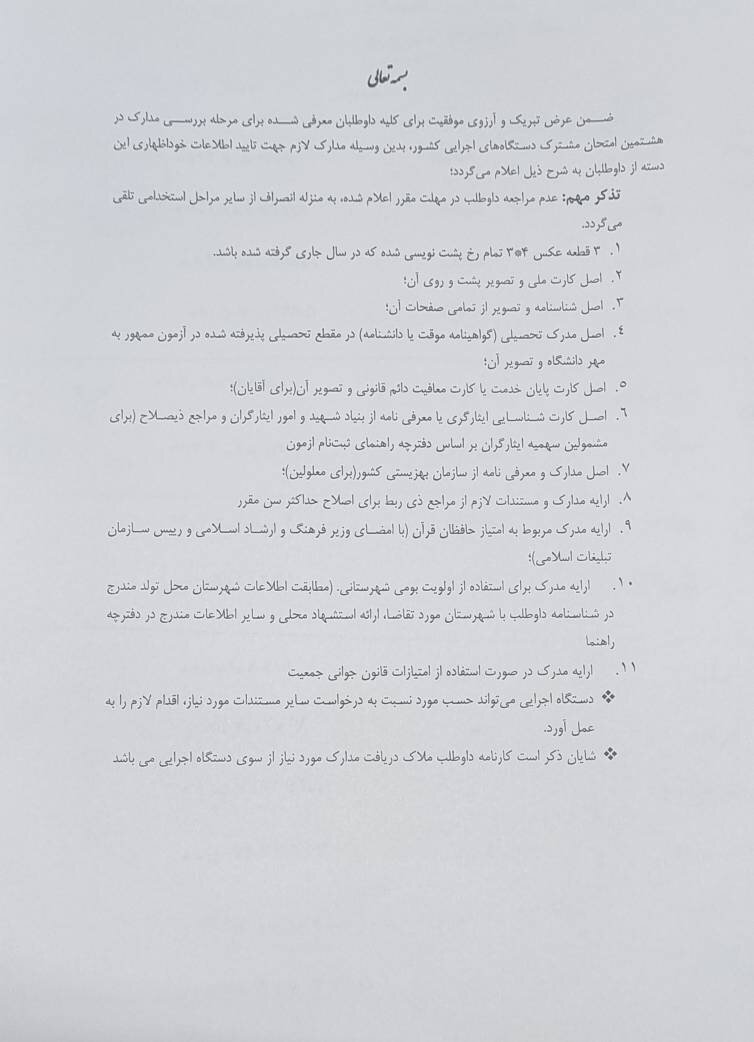 بسمه تعالی
ضمن عرض تبریک و آرزوی موفقیت برای کلیه داوطلبان معرفی شده برای مرحله بررسی مدارک در
هشتمین امتحان مشترک دستگاههای اجرایی کشور، بدین وسیله مدارک لازم جهت تایید اطلاعات خوداظهاری این
دسته از داوطلبان به شرح ذیل اعلام می‌گردد:
تذکر مهم: عدم مراجعه داوطلب در مهلت مقرر اعلام شده، به منزله انصراف از سایر مراحل استخدامی تلقی
می‌گردد.
۱. ۳ قطعه عکس ۴*۳ تمام رخ پشت نویسی شده که در سال جاری گرفته شده باشد.
۲. اصل کارت ملی و تصویر پشت و روی آن؛
۳. اصل شناسنامه و تصویر از تمامی صفحات آن؛
۴. اصل مدرک تحصیلی (گواهینامه موقت یا دانشنامه) در مقطع تحصیلی پذیرفته شده در آزمون ممهور به
مهر دانشگاه و تصویر آن؛
۵. اصل کارت پایان خدمت یا کارت معافیت دائم قانونی و تصویر آن(برای آقایان)؛
۶. اصل کارت شناسایی ایثارگری یا معرفی نامه از بنیاد شهید و امور ایثارگران و مراجع ذیصلاح (برای
مشمولین سهمیه ایثارگران بر اساس دفترچه راهنمای ثبت‌نام آزمون
۷. اصل مدارک و معرفی نامه از سازمان بهزیستی کشور(برای معلولین)؛
۸. ارایه مدارک و مستندات لازم از مراجع ذی ربط برای اصلاح حداکثر سن مقرر
۹. ارایه مدرک مربوط به امتیاز حافظان قرآن (با امضای وزیر فرهنگ و ارشاد اسلامی و رییس سازمان
تبلیغات اسلامی)؛
۱۰. ارایه مدرک برای استفاده از اولویت بومی شهرستانی. (مطابقت اطلاعات شهرستان محل تولد مندرج
در شناسنامه داوطلب با شهرستان مورد تقاضا، ارائه استشهاد محلی و سایر اطلاعات مندرج در دفترچه
راهنما
۱۱. ارایه مدرک در صورت استفاده از امتیازات قانون جوانی جمعیت
❖ دستگاه اجرایی می‌تواند حسب مورد نسبت به درخواست سایر مستندات مورد نیاز، اقدام لازم را به
عمل آورد.
❖ شایان ذکر است کارنامه داوطلب ملاک دریافت مدارک مورد نیاز از سوی دستگاه اجرایی می باشد